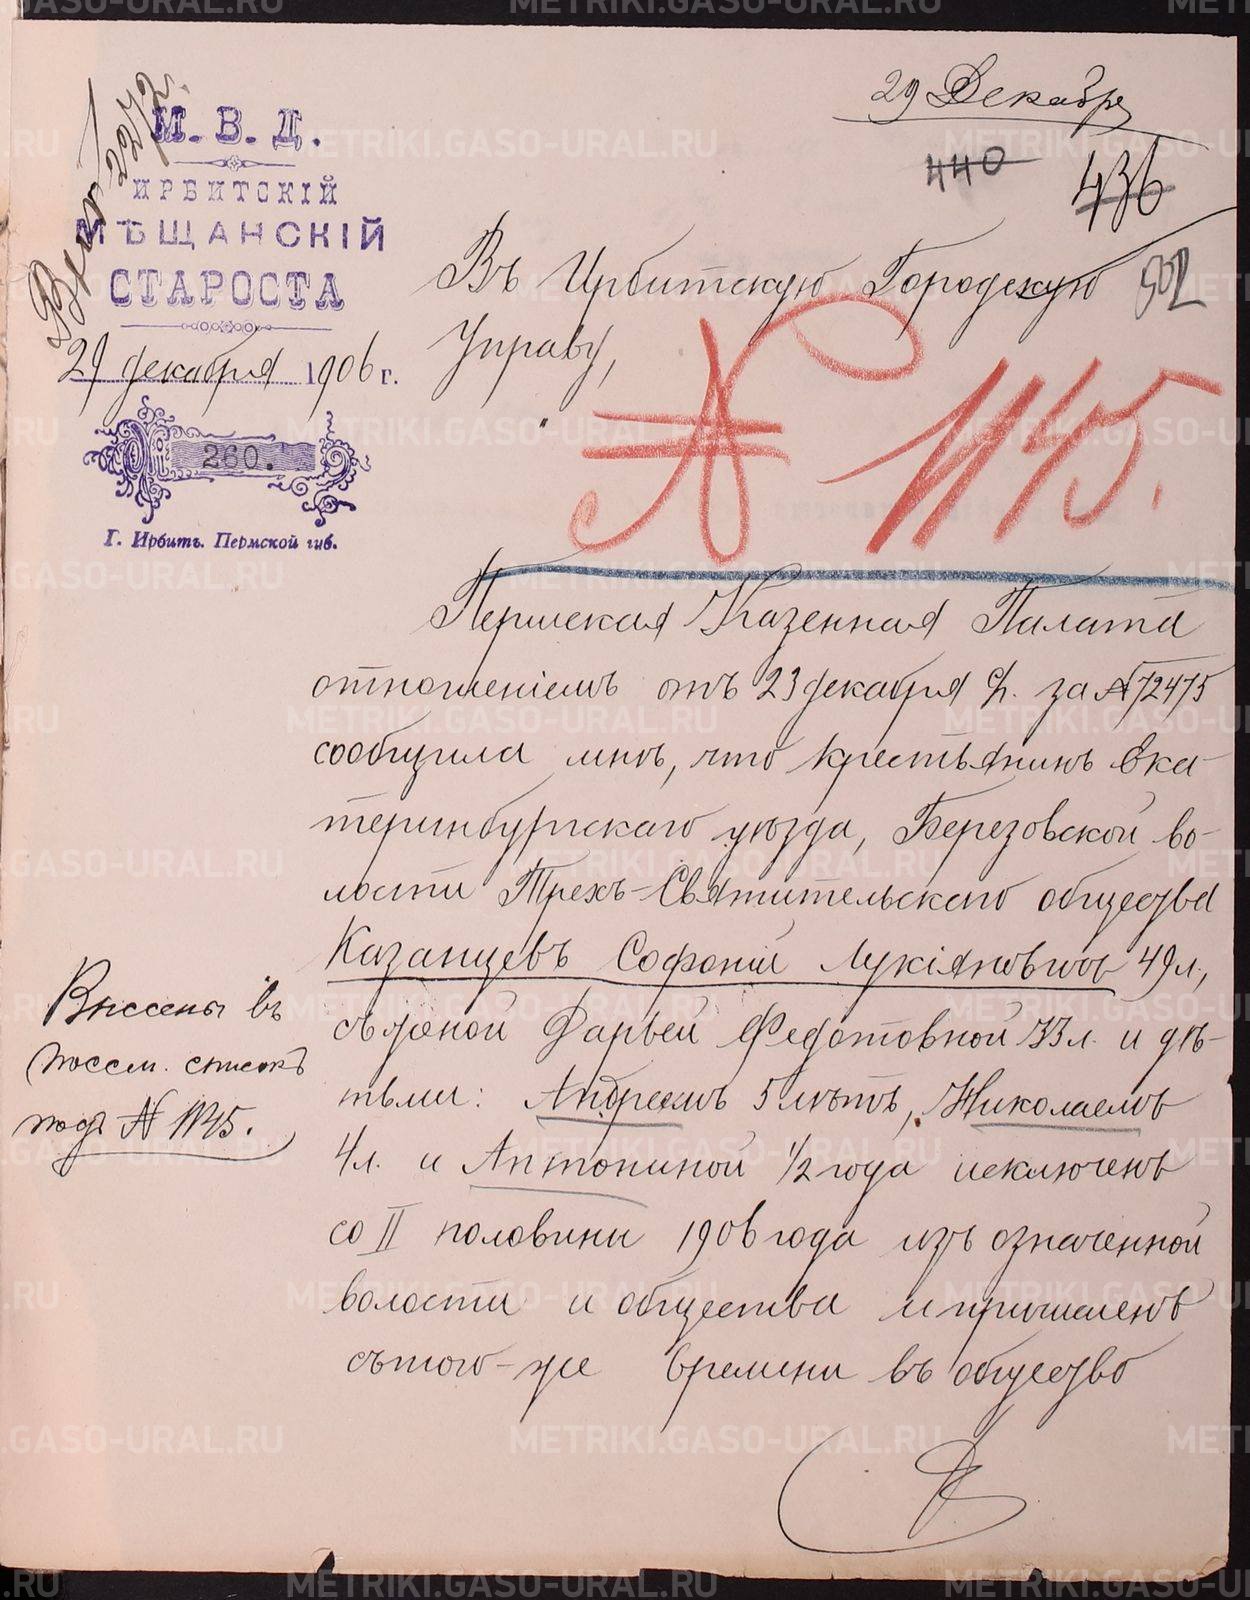 29 Декабря
440
436
502
Вх. № 2272.
М. В. Д.
ИРБИТСКІЙ
МѢЩАНСКІЙ
СТАРОСТА
29 декабря 1906 г.
№ 260.
Г. Ирбитъ. Пермской губ.
Въ Ирбитскую Городскую
Управу,
№ 1145.
Пермская Казенная Палата
отношеніемъ отъ 23 декабря с/г. за № 72475
сообщила мнѣ, что крестьянинъ Ека-
теринбургскаго уѣзда, Березовской во-
лости Трехъ-Святительскаго общества
Казанцевъ Софоній Лукіяновичъ 49 л.,
съ женой Дарьей Федотовной 33 л. и дѣ-
тьми: Андреемъ 5 лѣтъ, Николаемъ
4 л. и Антониной 1/2 года исключенъ
со II половины 1906 года изъ означенной
волости и общества и причисленъ
съ того-же времени въ общество
Внесены въ
посем. списокъ
подъ № 1145.
METRIKI.GASO-URAL.RU